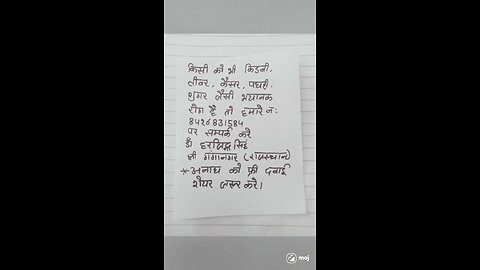 किसी को भी किडनी,
लीवर, कैंसर, पथरी,
शुगर जैसी भयानक
रोग है तो हमारे न:
8426831584
पर सम्पर्क करे
डॉ हरजिन्द्र सिंह
श्री गंगानगर (राजस्थान)
*अनाथ को फ्री दवाई
शेयर जरूर करे।
moj